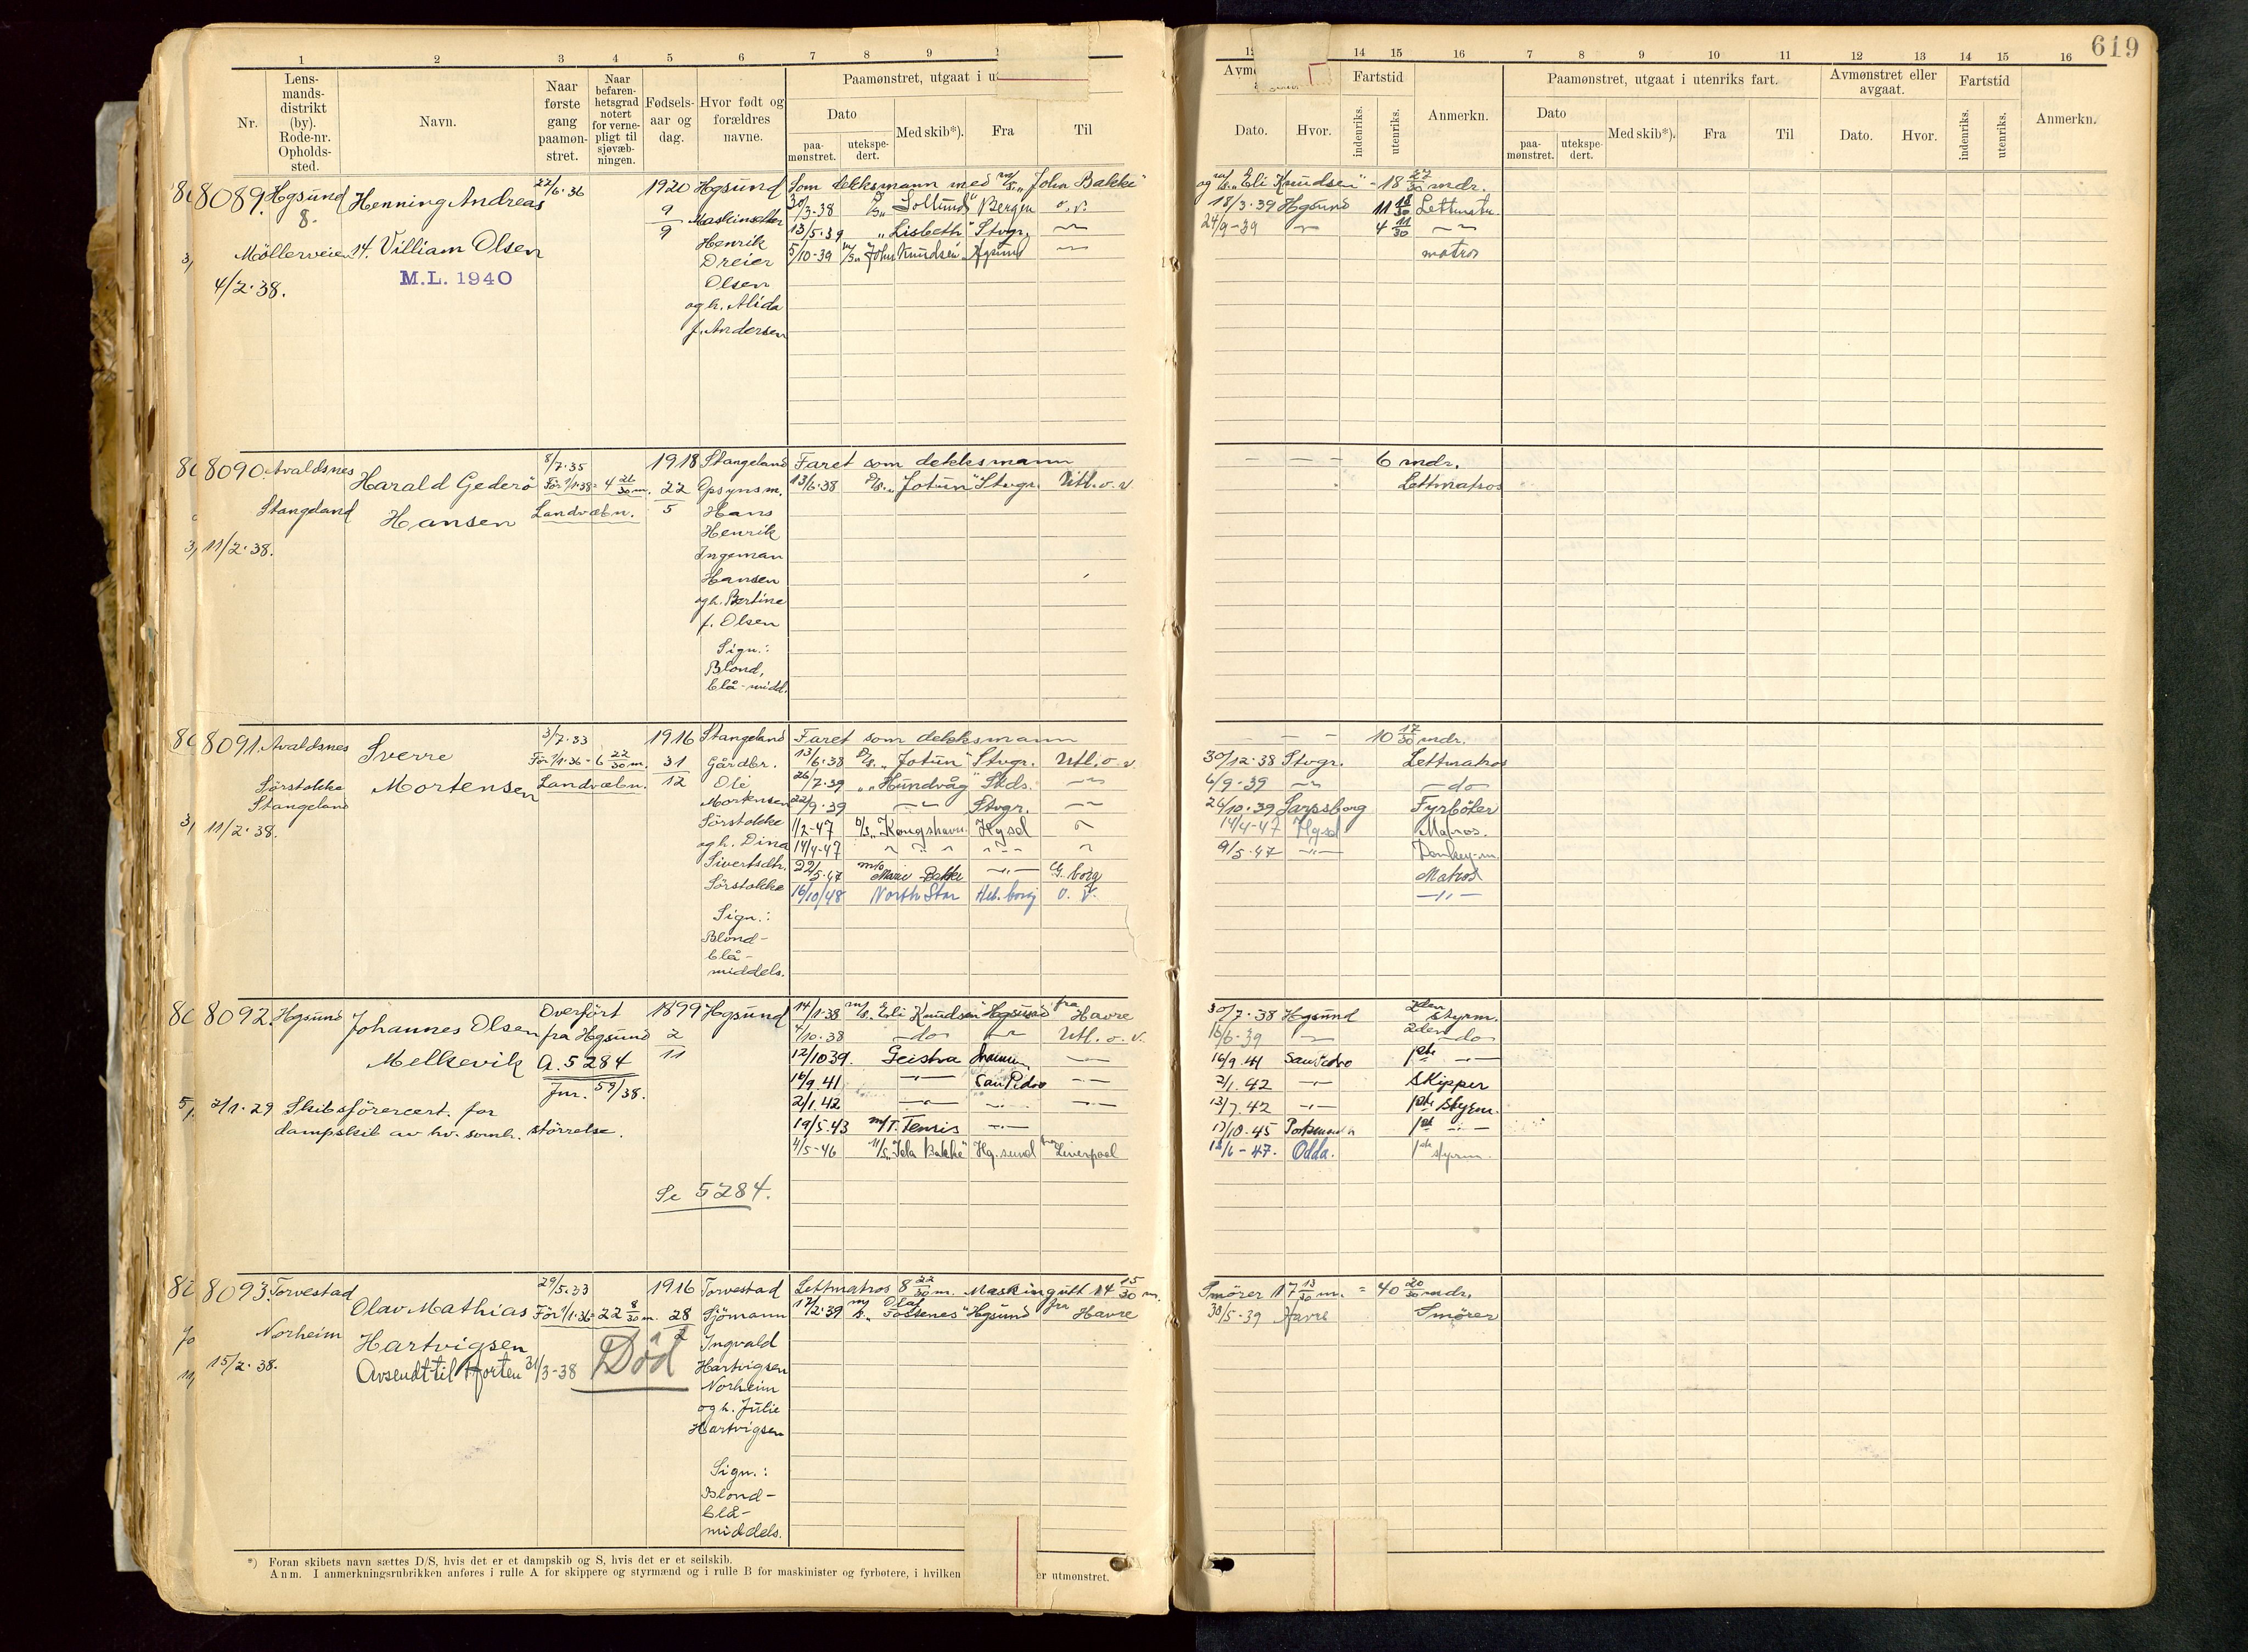 619
1 2 3 4 5 6 7 8 9
14 15 16 7 8 9 10 11 12 13 14 15 16
Nr.
Lens-
mands-
distrikt
(by).
Rode-nr.
Opholds-
sted.
Navn.
Naar
første
gang
paamøn-
stret.
Naar
befaren-
hetsgrad
notert
for verne-
pligt til
sjøvæb-
ningen.
Fødsels-
aar og
dag.
Hvor født og
forældres
navne.
Paamønstret, utgaat i
Dato
paa-
mønstret.
utekspe-
dert.
Med skib*).
Fra
Til
Dato.
Hvor.
Fartstid
indenriks.
utenriks.
Anmerkn.
Paamønstret, utgaat i utenriks fart.
Dato
paa-
mønstret.
utekspe-
dert.
Med skib*).
Fra
Til
Avmønstret eller
avgaat.
Dato.
Hvor.
Fartstid
indenriks.
utenriks.
Anmerkn.
8089. Hgsund
8.
Möllerveien 14.
4/2.38.
Henning Andreas
Villiam Olsen
M.L. 1940
22/6.36
1920
9
9
Hgsund
Henrik
Dreier
Olsen
og h. Alida
f. Andersen
Som dekksmann med m/s. "John Bakke"
og m/s. "Eli Knudsen" - 18 27/30 mdr.
30/3-38 "Sollund" Bergen o.v. 18/3.39 Hgsund 11 18/30 Lettmatr.
13/5.39 "Lisbeth" Stvgr. 24/9-39 4 11/30
5/10-39 m/s. "John Knudsen" Hgsund matros
8090. Avaldsnes
Stangeland
11/2.38.
Harald Gederö
Hansen
8/7.35
För 1/1.38 = 4 21/30 m.
Landvæbn.
1918
22
5
Stangeland
Opsynsm.
Hans
Henrik
Ingeman
Hansen
og h. Bertine
f. Olsen
Sign.:
Blond,
blå-midd.
Faret som dekksmann - - - 6 mdr.
13/6.38 D/s. "Jotun" Stvgr. Utl. o. v Lettmatros
8091. Avaldsnes
Sörstokke
Stangeland
11/2.38.
Sverre
Mortensen
3/7.33
För 1/1.36 - 6 22/30 m.
Landvæbn.
1916
31
12
Stangeland
Gårdbr.
Ole
Mortensen
Sörstokke
og h. Dina
Sivertsdtr.
Sörstokke
Sign.:
Blond-
blå-
middels.
Faret som dekksmann - - - 10 17/30 mdr.
13/6.38 D/s. "Jotun" Stvgr. Utl. o. v 30/12.38 Stvgr. Lettmatros
26/7.39 " "Hundvåg" Skds. 6/9-39 -do-
22/9.39 Stvgr. 26/10.39 Sarpsborg Fyrböter
1/2-47 D/s. "Kongshavn" Hgsd 14/4-47 Hgsd Matros.
14/4-47 9/5-47 Donkeym.
22/5.47 Marie Bakke G.borg Matros
16/10/48 North Star Hels.borg o. v.
8092. Hgsund
2/1.29 Skibsförercert. for
dampskib av hv. somh. störrelse.
Johannes Olsen
Melkevik
Overfört
fra Hgsund
A. 5284
Jnr. 59/38.
1899
2
11
Hgsund
Se 5284.
14/1.38 m/s. "Eli Knudsen" Hgsund fra Havre 30/7.38 Hgsund 2den styrm.
4/10.38 -do- Utl. o. v. 16/6-39 2den -do-
12/10 39. Geisha 16/9.41 San Pedro 1ste
16/9.41 San Pedro 2/1.42 Skipper
2/1.42 13/7.42 1ste styrm.
19/5.43 m/T. Temis 17/10.45 1ste
4/5-46 "Ida Bakke" Hg.sund fra Liverpool 18/6-47. Odda. 1ste styrm.
8093. Torvestad
Norheim
15/2.38.
Olav Mathias
Hartvigsen
Avsendt til Horten 31/3-38
29/5.33
För 1/1.36 = 22 8/30 m.
Död
1916
28
2
Torvestad
Sjömann
Ingvald
Hartvigsen
Norheim
og h. Julie
Hartvigsen
Sign.:
Blond-
blå-
middels.
Lettmatros 8 22/30 m. Maskingutt 14 15/30 m. Smörer 17 13/30 m. = 40 20/30 mdr.
17/2.39 m/s. "Olaf Fostenes" Hgsund fra Havre 30/5-39 Havre Smörer
*) Foran skibets navn sættes D/S, hvis det er et dampskib og S, hvis det er et seilskib.
Anm. I anmerkningsrubrikken anføres i rulle A for skippere og styrmænd og i rulle B for maskinister og fyrbøtere, i hvilken er utmønstret.